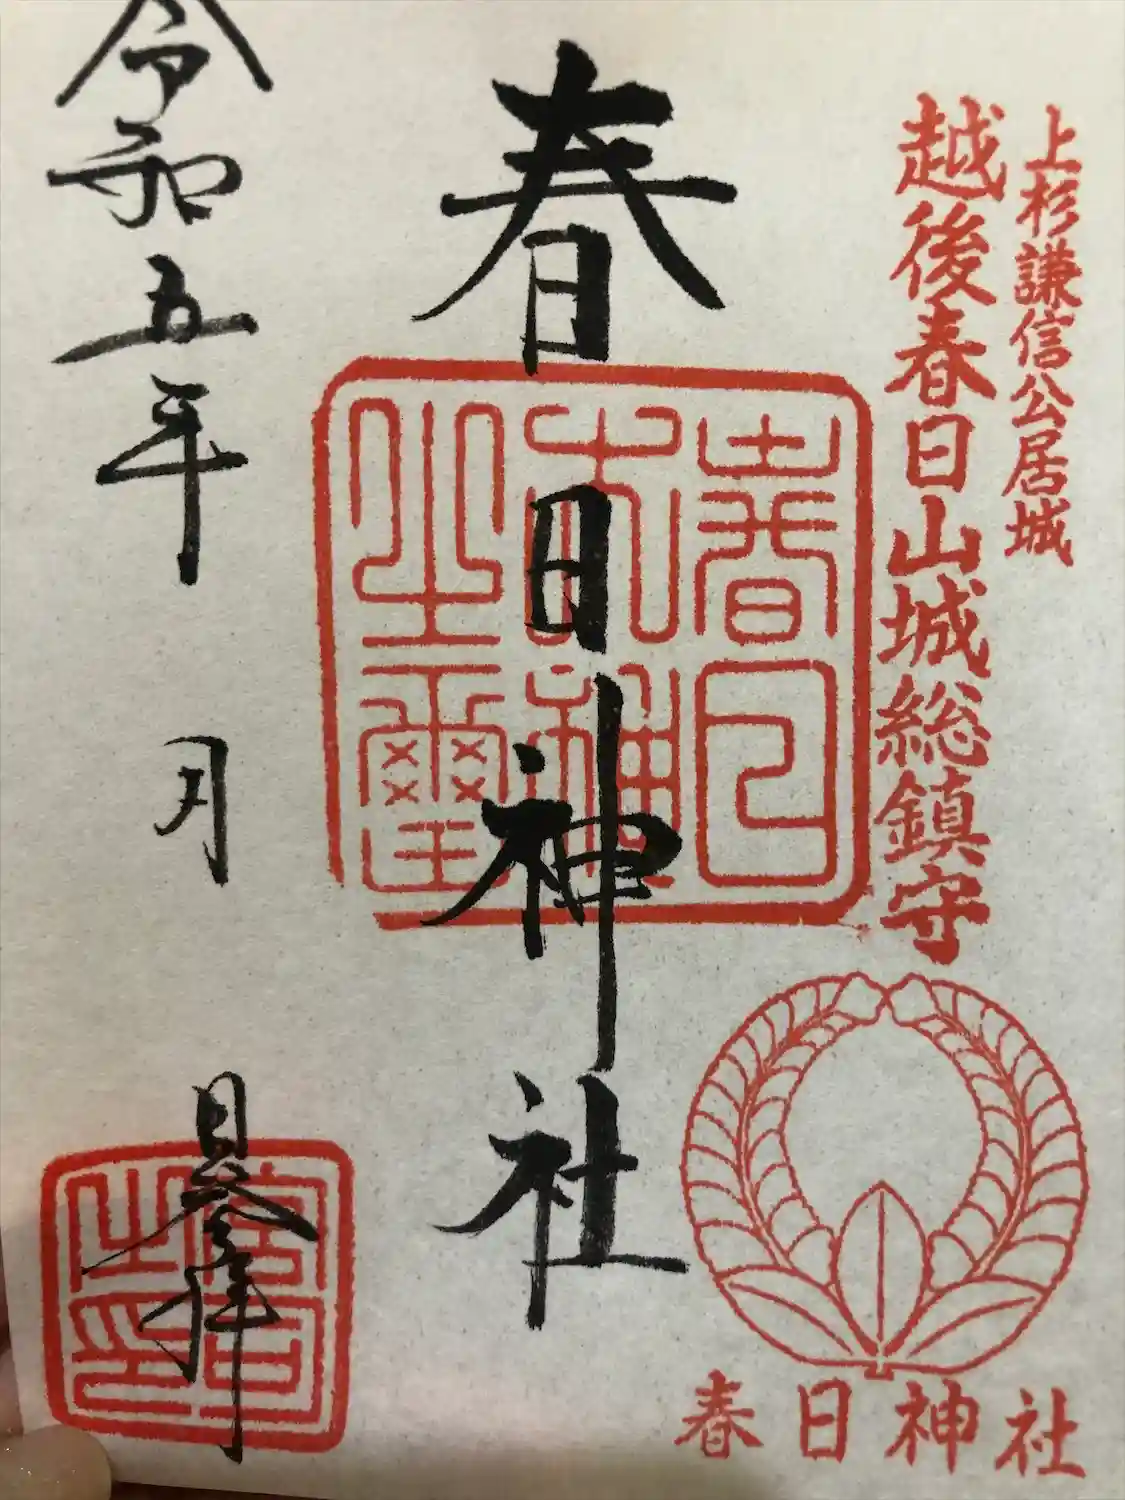 上杉謙信公居城
越後春日山城総鎮守
春日神社
春日神社
春日大神之璽
令和五年 月 日参拝
宮司之印